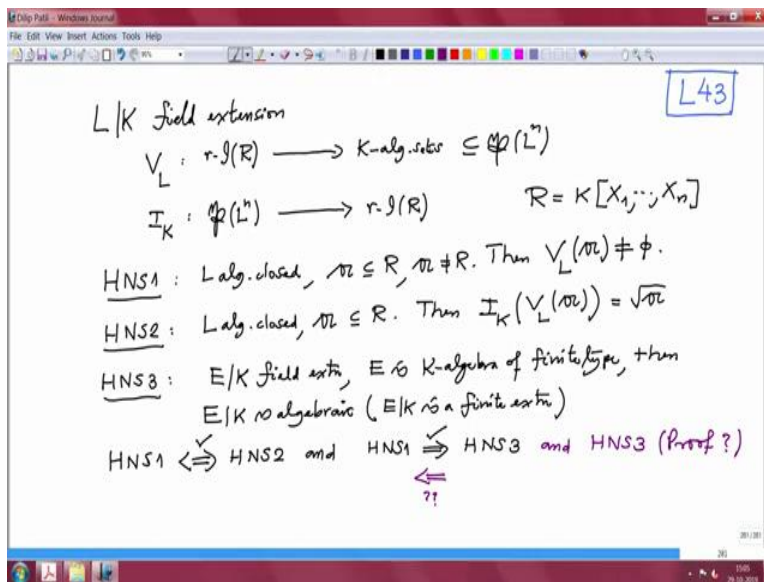 Dilip Patil - Windows Journal
File Edit View Insert Actions Tools Help
L43
L|K field extension
V_L : r-I(R) ⟶ K-alg. sets ⊆ 𝔓(L^n)
I_K : 𝔓(L^n) ⟶ r-I(R)
R = K[X_1, ..., X_n]
HNS1 : L alg. closed, 𝔞 ⊆ R, 𝔞 ≠ R. Then V_L(𝔞) ≠ ϕ.
HNS2 : L alg. closed, 𝔞 ⊆ R. Then I_K(V_L(𝔞)) = √𝔞
HNS3 : E|K field extn, E is K-algebra of finite type, then
E|K is algebraic (E|K is a finite extn)
HNS1 ⇔ ✓ HNS2 and HNS1 ⇒ ✓ HNS3 and HNS3 (Proof ?)
⇐
??
281/281
281
15:05
29-10-2019